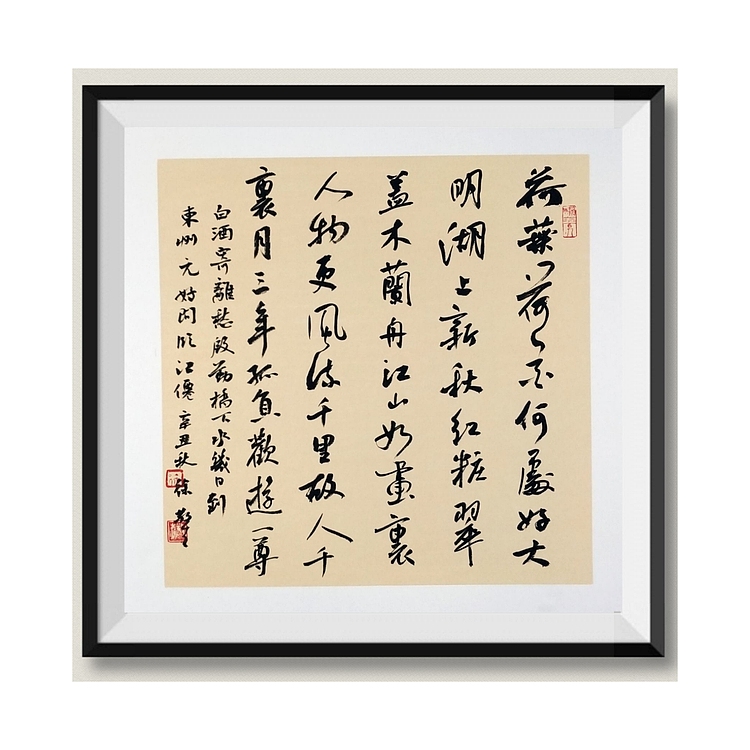 荷葉荷花何處好大
明湖上新秋紅粧翠
蓋木蘭舟江山如畫裏
人物更風流千里故人千
裏月三年孤負歡遊一尊
白酒寄離愁殷勤橋下水幾日到
東州元好問臨江僊辛丑秋徐